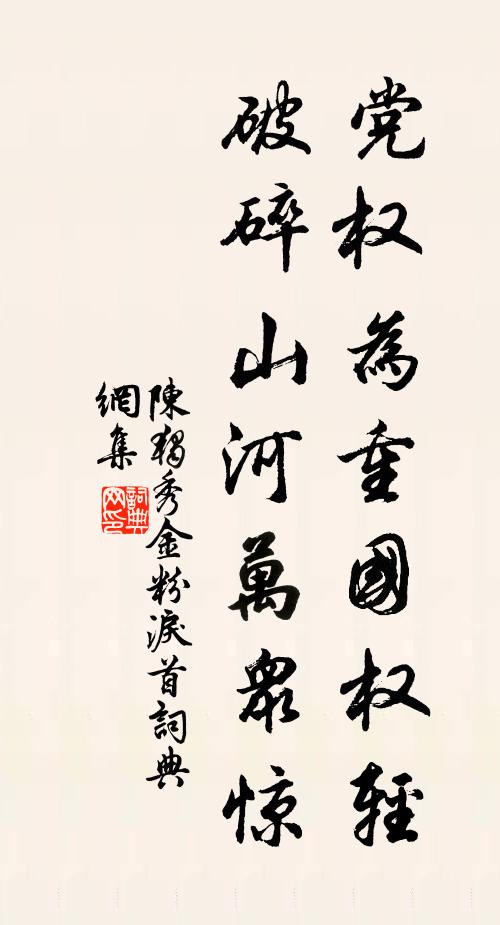 党权為重國权輕
破碎山河萬眾惊
陳獨秀金粉淚首詞典
網集
詞典
网印